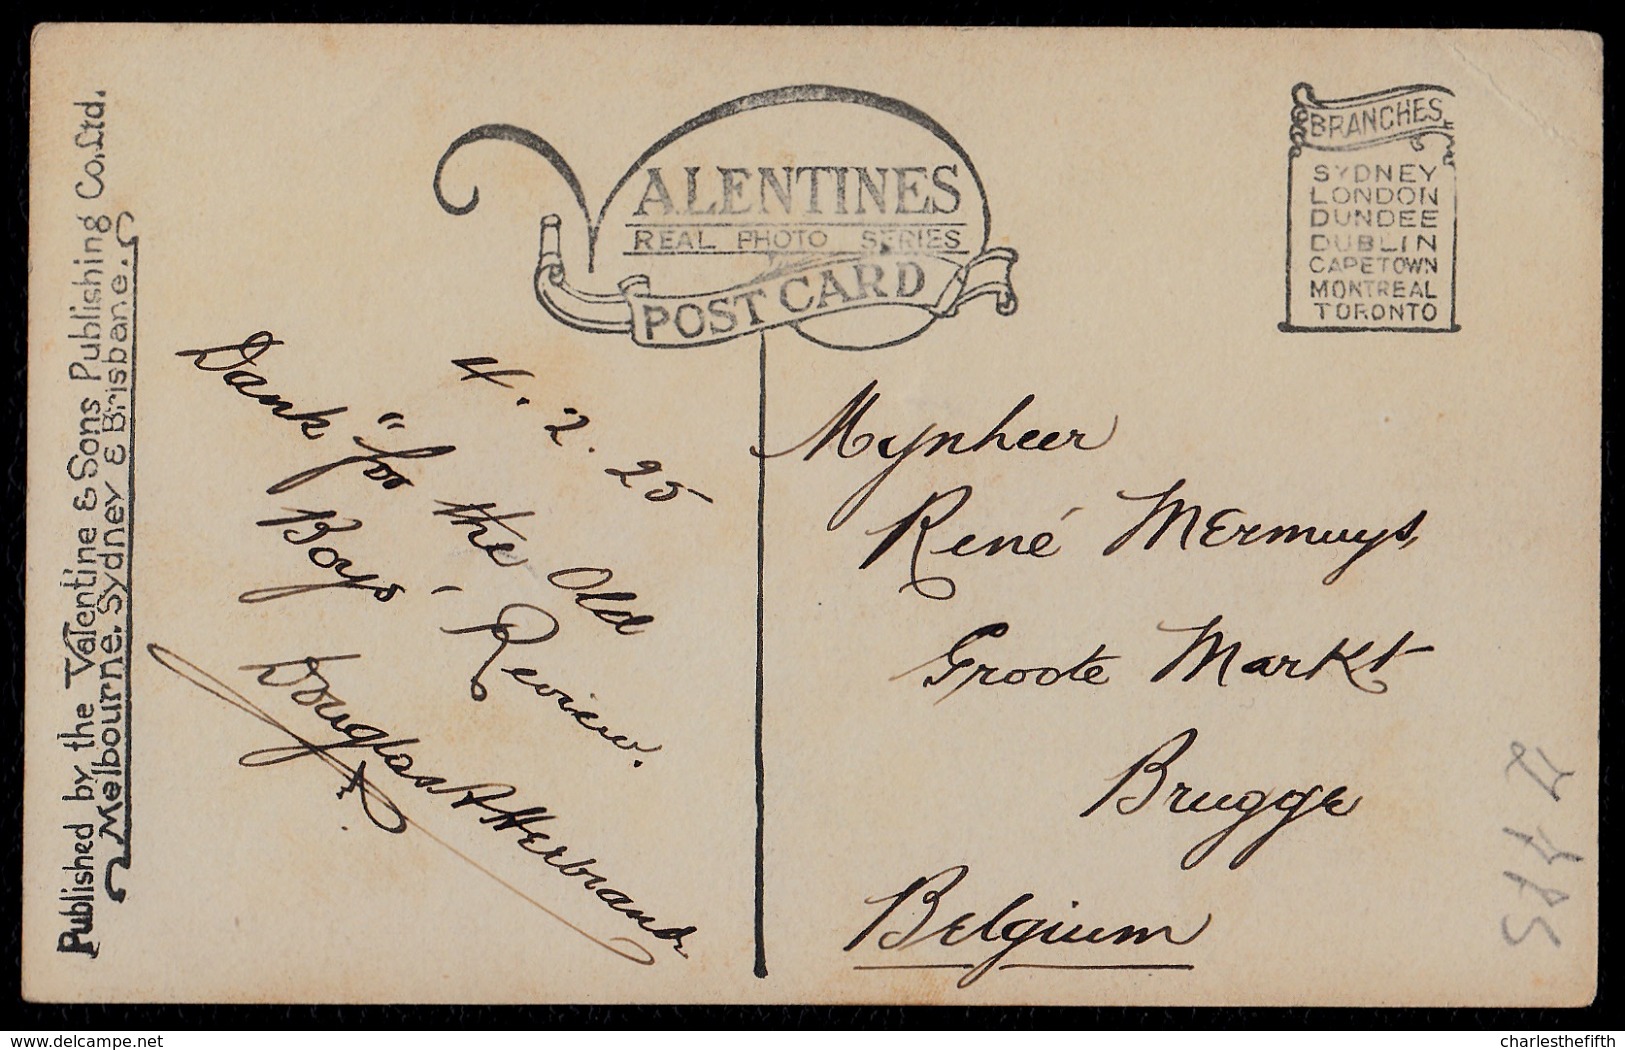 Published by the Valentine & Sons Publishing Co, Ltd.
Melbourne. Sydney & Brisbane.
VALENTINES
REAL PHOTO SERIES
POST CARD
BRANCHES
SYDNEY
LONDON
DUNDEE
DUBLIN
CAPETOWN
MONTREAL
TORONTO
4. 2. 25
Dank for the Old
"Boys" Review.
Douglas A Herbrand
Mynheer
René Mermuys,
Groote Markt
Brugge
Belgium
delcampe.net
charlesthefifth